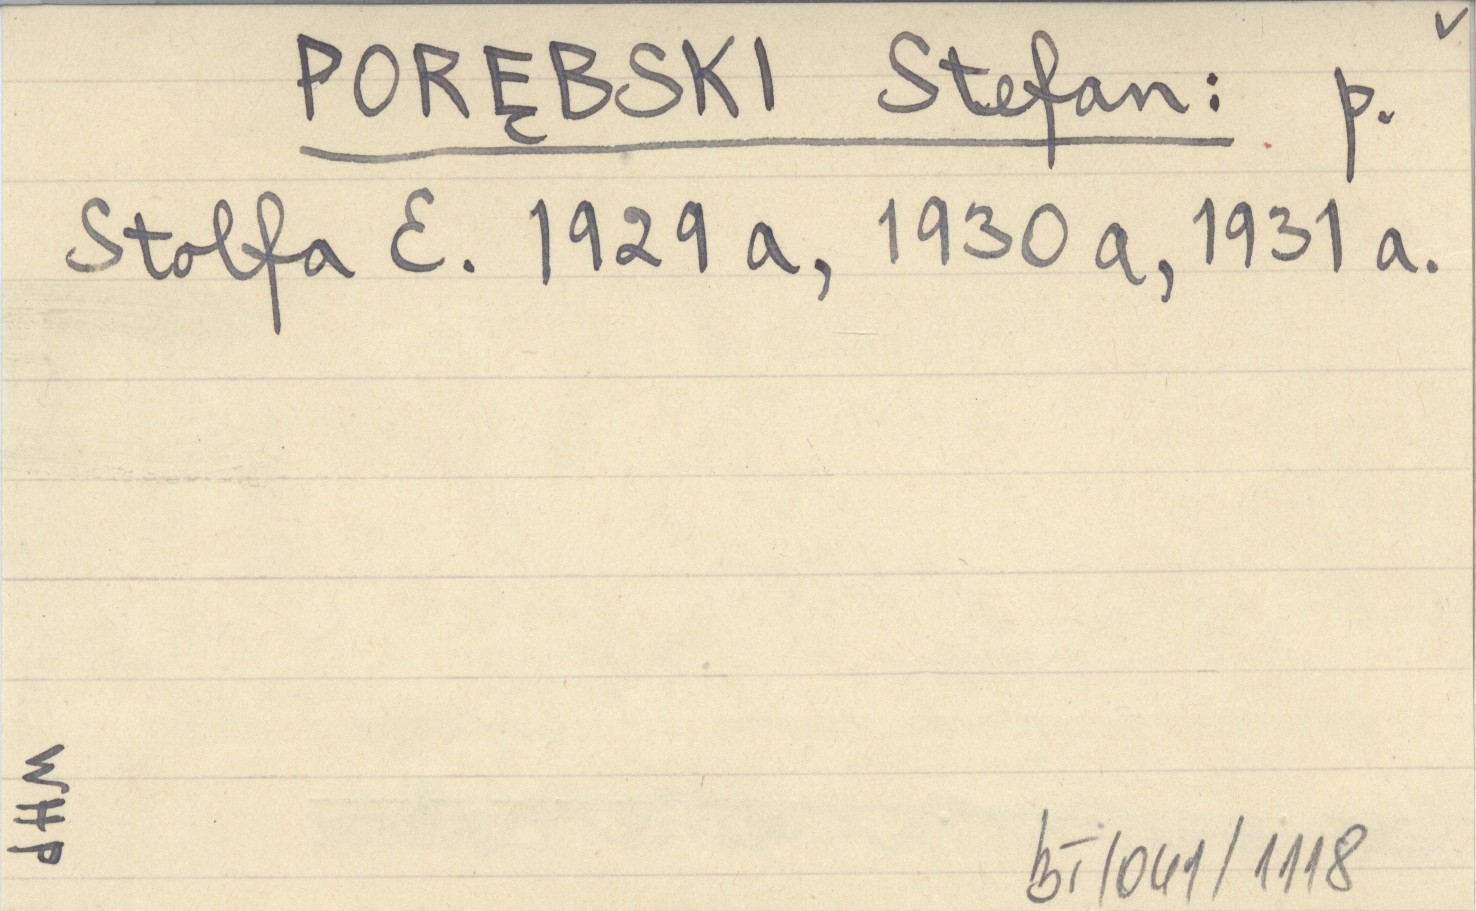 PORĘBSKI Stefan: p.
Stolfa E. 1929 a, 1930 a, 1931 a.
WHP
BI/041/1118